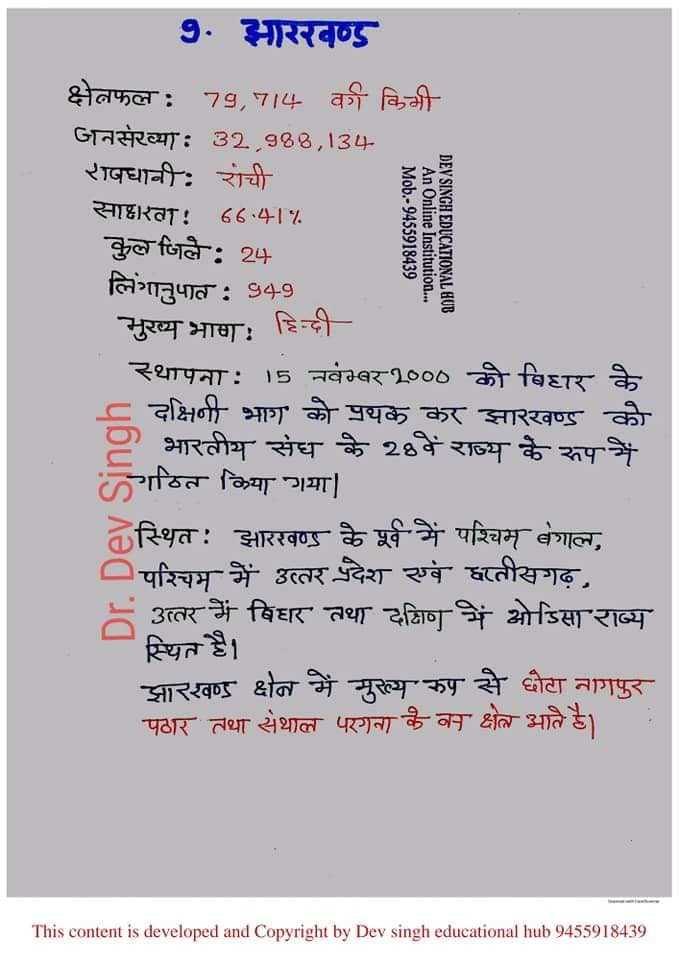 9. झारखण्ड
क्षेत्रफल : 79,714 वर्ग किमी
जनसंख्या : 32,988,134
राजधानी : रांची
साक्षरता : 66.41%
कुल जिले : 24
लिंगानुपात : 949
मुख्य भाषा : हिन्दी
DEV SINGH EDUCATIONAL HUB
An Online Institution...
Mob.- 9455918439
स्थापना : 15 नवंम्बर 2000 को बिहार के
दक्षिणी भाग को प्रथक कर झारखण्ड को
भारतीय संघ के 28वें राज्य के रूप में
गठित किया गया।
Dr. Dev Singh
स्थित : झारखण्ड के पूर्व में पश्चिम बंगाल,
पश्चिम में उत्तर प्रदेश एवं छत्तीसगढ़,
उत्तर में बिहार तथा दक्षिण में ओडिसा राज्य
स्थित है।
झारखण्ड क्षेत्र में मुख्य रूप से छोटा नागपुर
पठार तथा संथाल परगना के वन क्षेत्र आते है।
This content is developed and Copyright by Dev singh educational hub 9455918439